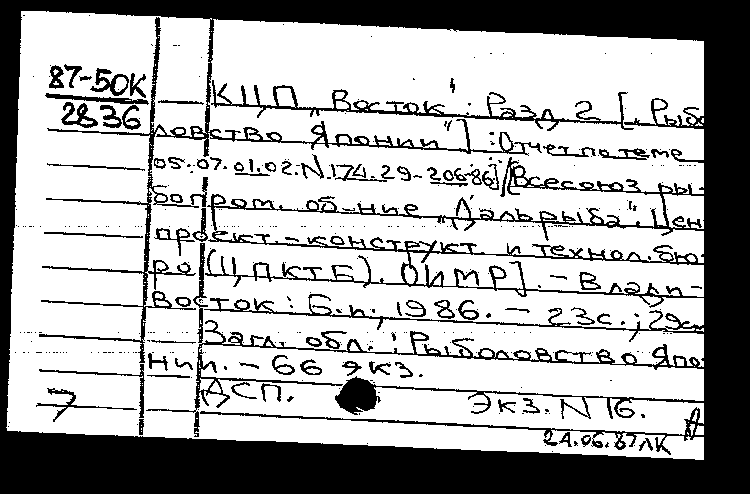 87-50К
2836
КЦП „Восток": Разд. 2 [„Рыбо
ловство Японии"] : Отчет по теме
05.07.01.02.N174.29-206-86/[Всесоюз. ры-
бопром. об-ние „Дальрыба". Цен
проект.-конструкт. и технол. бю-
ро (ЦПКТБ). ОИМР]. - Влади-
восток: Б.и., 1986. - 23с.; 29см
Загл. обл.: Рыболовство Япо
нии. - 66 экз.
ДСП.
Экз. N 16.
24.06.87лк